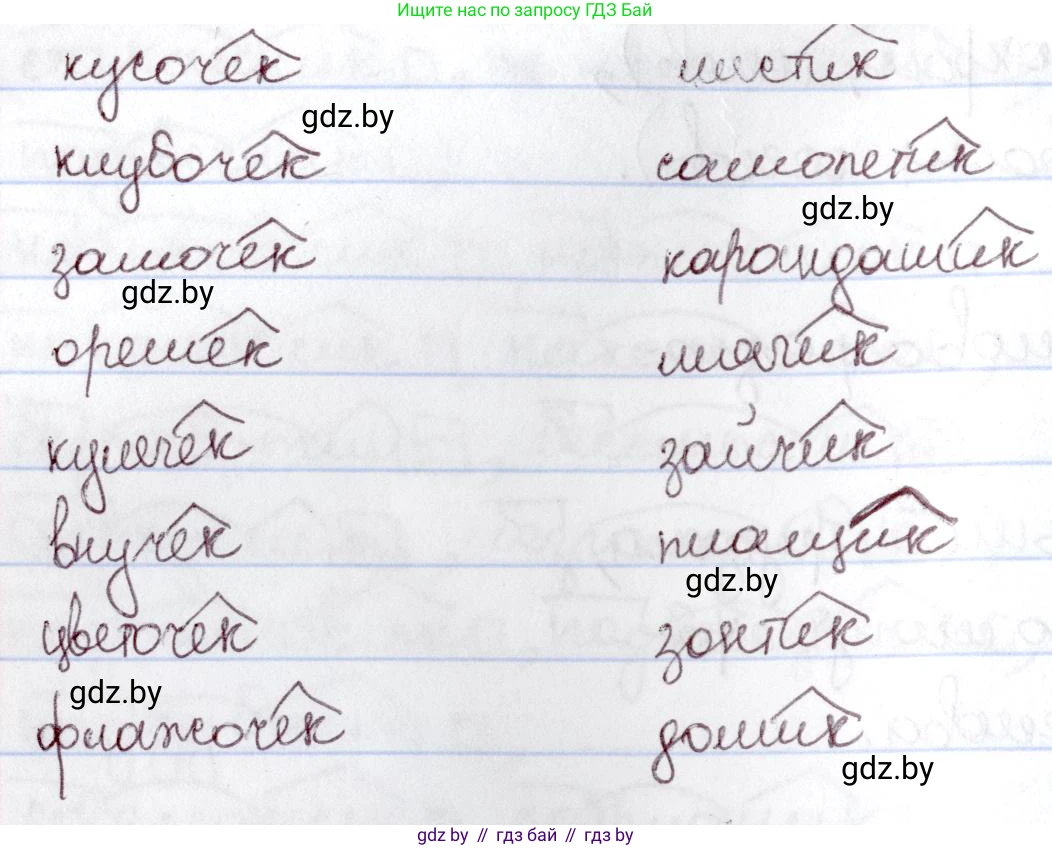 Ищите нас по запросу ГДЗ Бай
кусочек листик
gdz.by
клубочек самолетик
gdz.by
замочек карандашик
gdz.by
орешек мячик
кулечек зайчик
внучек плащик
gdz.by
цветочек зонтик
gdz.by
флажочек домик
gdz.by
gdz by // гдз бай // гдз by